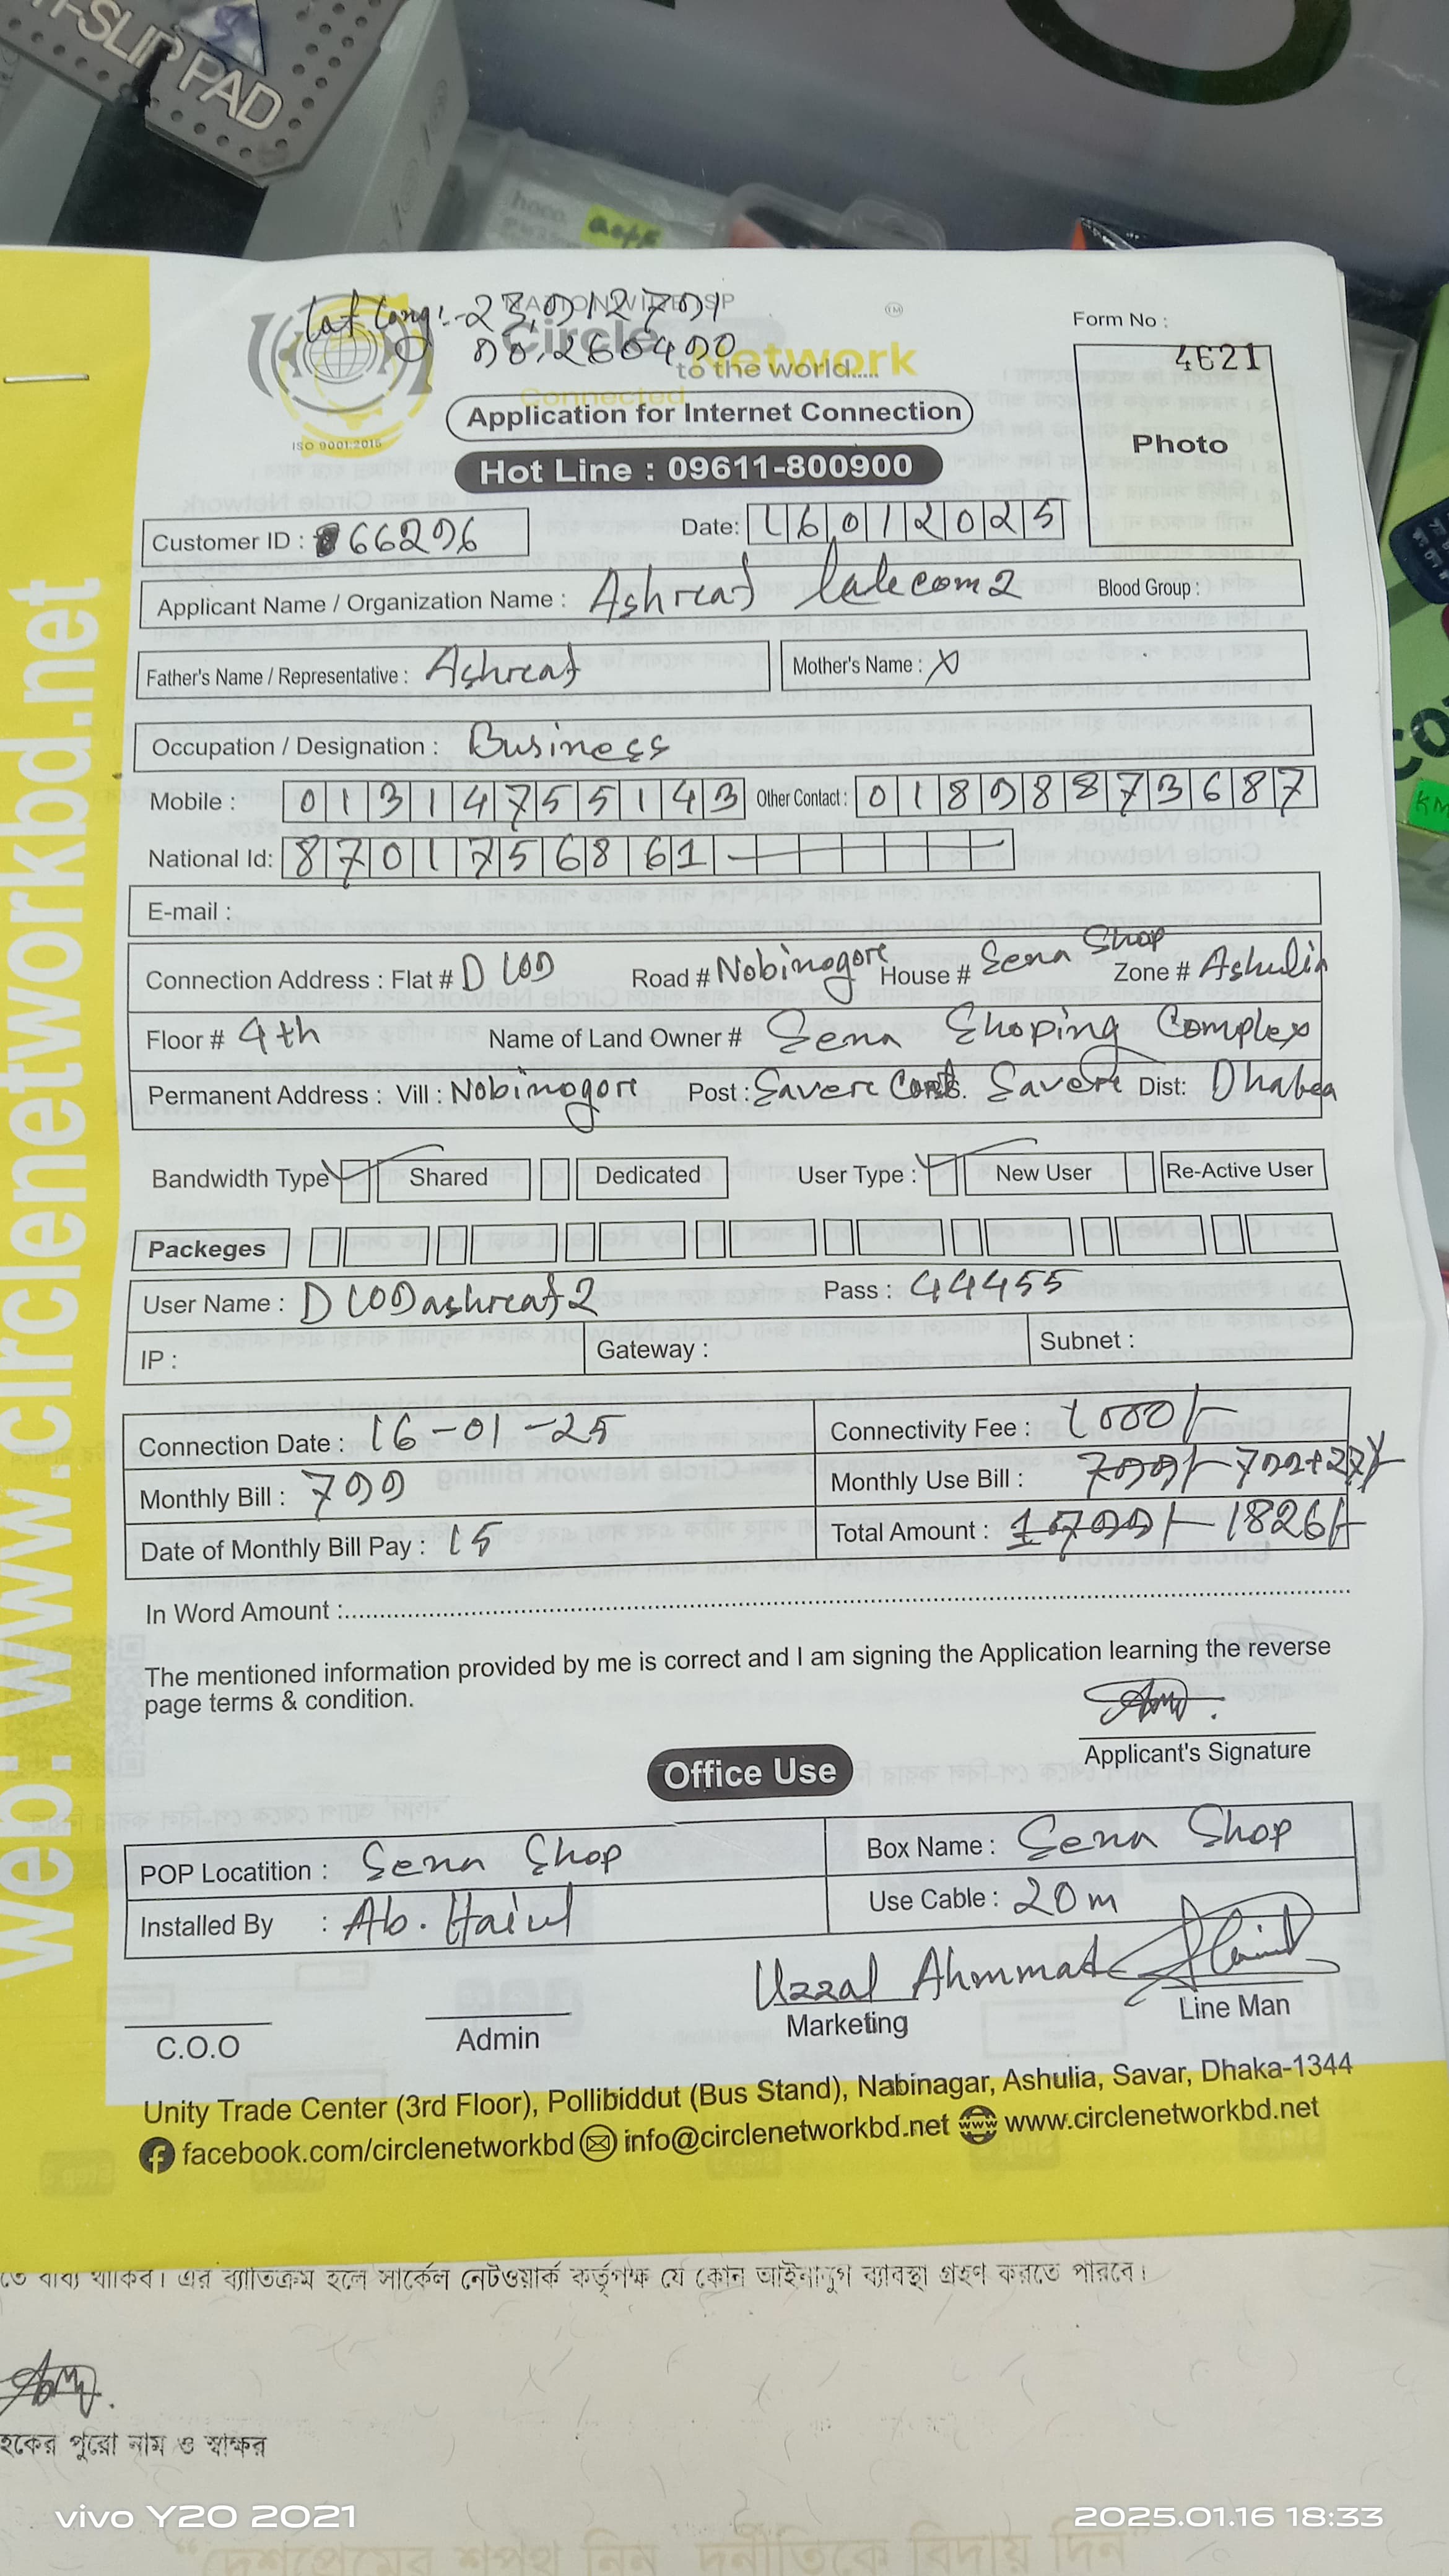 I-SLIP PAD
hoco.
Lat Long:- 23.912791
90.260490
NATIONWIDE ISP
Circle Network
Connected to the world.....
ISO 9001:2015
TM
Form No :
4621
Photo
Application for Internet Connection
Hot Line : 09611-800900
Customer ID : 66296
Date: 16012025
Applicant Name / Organization Name : Ashraf telecom2 Blood Group :
Father's Name / Representative : Ashraf Mother's Name : X
Occupation / Designation : Business
Mobile : 01314755143 Other Contact : 01898873687
National Id: 8701756861
E-mail :
Connection Address : Flat # D 109 Road # Nobinogore House # Sena Shop Zone # Ashulia
Floor # 4th Name of Land Owner # Sena Shoping Complex
Permanent Address : Vill : Nobinogore Post : Saver Cantt. Saver Dist: Dhaka
Bandwidth Type Shared Dedicated User Type : New User Re-Active User
Packeges
User Name : D109ashraf2 Pass : 44455
IP : Gateway : Subnet :
Connection Date : 16-01-25 Connectivity Fee : 1000/-
Monthly Bill : 799 Monthly Use Bill : 799/- 799+27/-
Date of Monthly Bill Pay : 15 Total Amount : 1799/- 1826/-
In Word Amount :
The mentioned information provided by me is correct and I am signing the Application learning the reverse
page terms & condition.
Applicant's Signature
Office Use
POP Locatition : Sena Shop Box Name : Sena Shop
Installed By : Ab. Haiul Use Cable : 20m
Uzzal Ahmmad
C.O.O Admin Marketing Line Man
Unity Trade Center (3rd Floor), Pollibiddut (Bus Stand), Nabinagar, Ashulia, Savar, Dhaka-1344
facebook.com/circlenetworkbd info@circlenetworkbd.net www www.circlenetworkbd.net
web: www.circlenetworkbd.net
তে বাধ্য থাকিব। এর ব্যাতিক্রম হলে সার্কেল নেটওয়ার্ক কর্তৃপক্ষ যে কোন আইনানুগ ব্যাবস্থা গ্রহণ করতে পারবে।
হকের পুরো নাম ও স্বাক্ষর
vivo Y20 2021
2025.01.16 18:33
“দেশপ্রেমের শপথ নিন, দুর্নীতিকে বিদায় দিন”